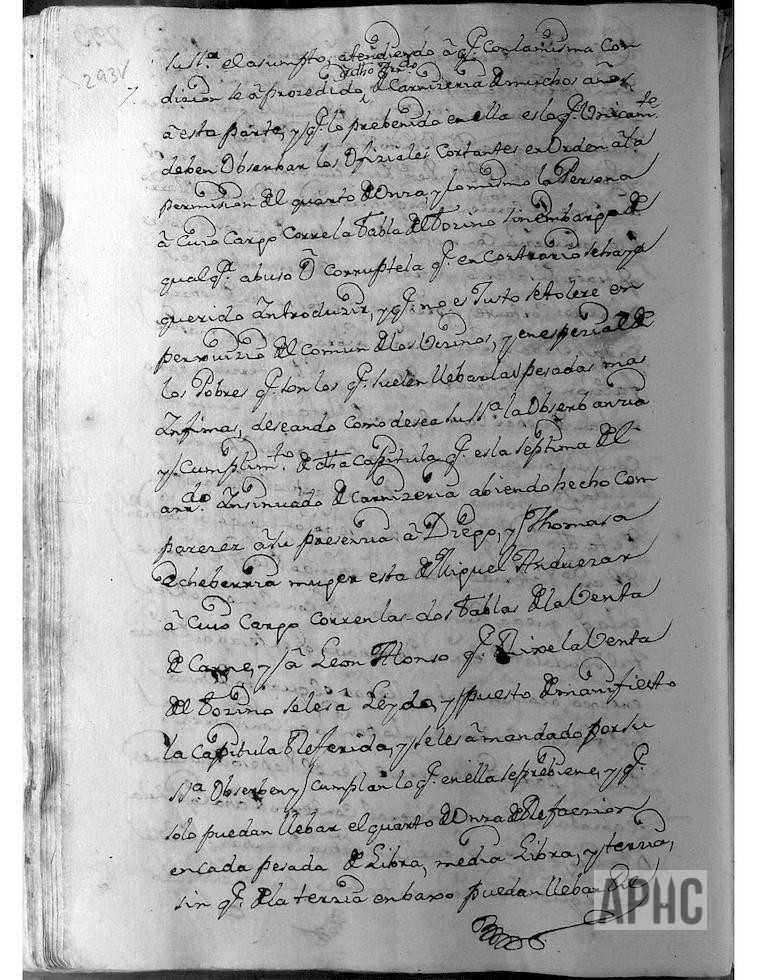 293V
su ssª. el asumpto, atendiendo â qᵉ. con la misma con
dicion se â prozedido en dho Arrdo de Carnizeria de muchos años
â esta parte, y qᵉ. lo prebenido en ella es lo qᵉ. Unicamᵗᵉ.
deben Obserbar los Ofiziales Cortantes en Orden â la
permision del quarto de Onza, y lo mismo la Persona
â Cuio Cargo Corre la Tabla del Tozino sin embargo de
qualqᵉ. abuso ô Corruptela qᵉ. en Contrario se haya
querido Introduzir, y qᵉ. no es Justo se tolere en
perxuizio del Comun de los Vezinos, y en espezial de
los Pobres qᵉ. son los qᵉ. suelen llebar las pesadas mas
Infimas, deseando como desea su ssª. la Obserbanzia
y Cumplimᵗᵒ. de dha Capitula qᵉ. es la septima del
arrᵈᵒ. Insinuado de Carnizeria abiendo hecho Com
parezer â su presenzia â Diego, y Thomasa
Echeberria muger esta de Miguel Anduezar
â Cuio Cargo Corren las dos Tablas de la Venta
de Carne, y â Leon Alonso qᵉ. Dixe la Venta
del Tozino se les â Leydo, y puesto de manifiesto
la Capitula Referida, y se les â mandado por su
ssª. Obserben y Cumplan lo qᵉ. en ella se prebiene, y qᵉ.
solo puedan llebar el quarto de Onza de Refaczion
en Cada pesada de Libra, media Libra, y terzia,
sin qᵉ. de la terzia en baxo puedan llebar
APHC